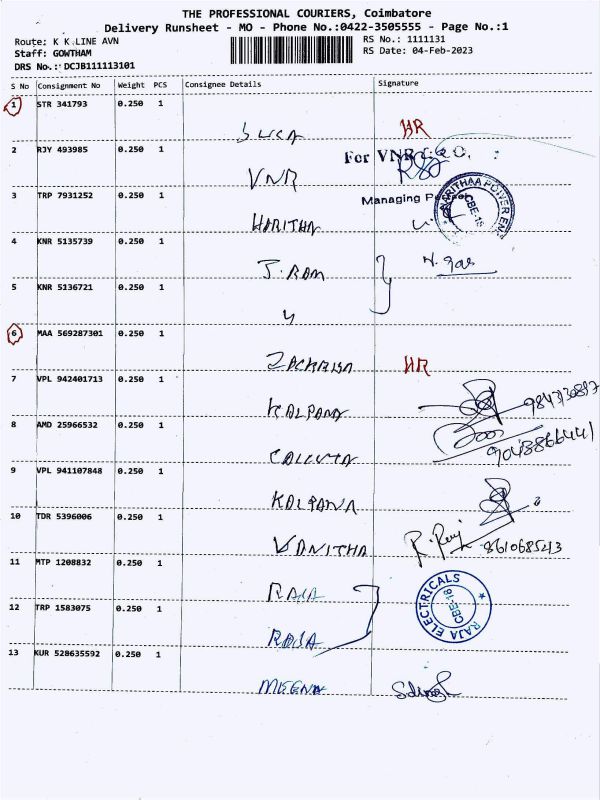 THE PROFESSIONAL COURIERS, Coimbatore
Delivery Runsheet - MO - Phone No.:0422-3505555 - Page No.:1
Route: K K LINE AVN
RS No.: 1111131
Staff: GOWTHAM
RS Date: 04-Feb-2023
DRS No.: DCJB111113101
S No Consignment No Weight PCS Consignee Details Signature
1 STR 341793 0.250 1
HR
2 RJY 493985 0.250 1
For VNR & CO.
VNR
3 TRP 7931252 0.250 1
Managing
HARITHA POWER
CBE-18
HARITHA
4 KNR 5135739 0.250 1
J. RAM
5 KNR 5136721 0.250 1
6 MAA 569287301 0.250 1
HR
7 VPL 942401713 0.250 1
KALPANA
8 AMD 25966532 0.250 1
9043866441
CALCUTA
9 VPL 941107848 0.250 1
KALPANA
10 TDR 5396006 0.250 1
VANITHA
11 MTP 1208832 0.250 1
RAJA
RAJA ELECTRICALS
CBE-18
12 TRP 1583075 0.250 1
RAJA
13 KUR 528635592 0.250 1
MEENA